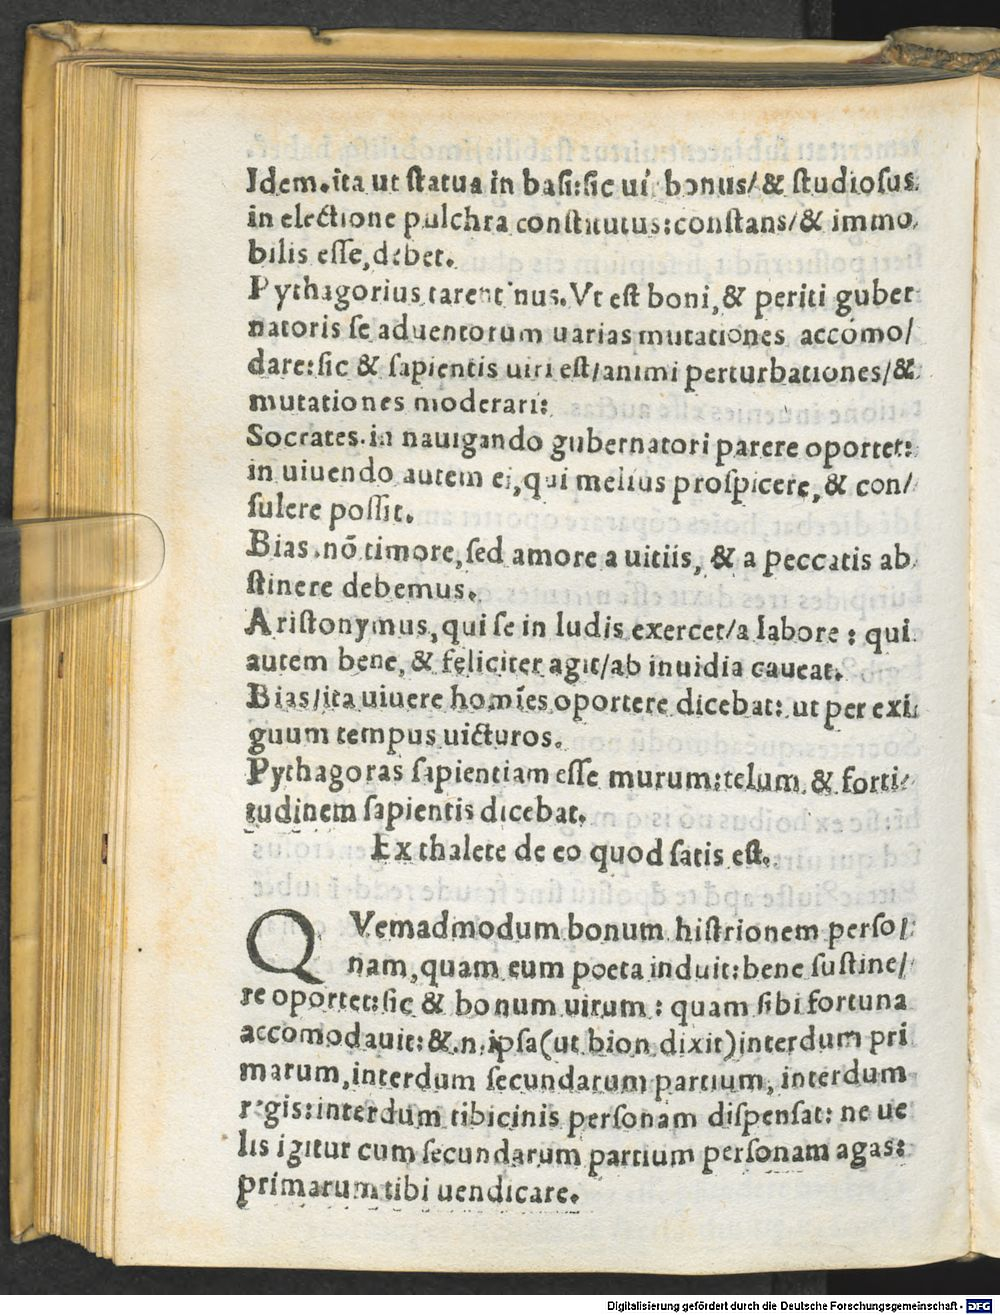 Idem.ita ut statua in basi:sic uir bonus/& studiosus.
in electione pulchra constitutus:constans/& immo,
bilis esse,debet.
Pythagorius tarentinus.Vt est boni,& periti guber
natoris se aduentorum uarias mutationes accōmo/
dare:sic & sapientis uiri est/animi perturbationes/&
mutationes moderari:
Socrates.in nauigando gubernatori parere oportet:
in uiuendo autem ei,qui melius prospicere,& con/
sulere possit.
Bias.nō timore,sed amore a uitiis, & a peccatis ab
stinere debemus.
Aristonymus,qui se in ludis exercet/a labore : qui
autem bene,& feliciter agit/ab inuidia caueat.
Bias/ita uiuere homīes oportere dicebat: ut per exi
guum tempus uicturos.
Pythagoras sapientiam esse murum:telum & forti/
tudinem sapientis dicebat.
Ex thalete de eo quod satis est.
QVemadmodum bonum histrionem perso/
nam,quam eum poeta induit:bene sustine/
re oportet:sic & bonum uirum : quam sibi fortuna
accomodauit:&.n.ipsa(ut bion dixit)interdum pri
marum,interdum secundarum partium, interdum
regis:interdum tibicinis personam dispensat: ne ue
lis igitur cum secundarum partium personam agas:
primarum tibi uendicare.
Digitalisierung gefördert durch die Deutsche Forschungsgemeinschaft - DFG